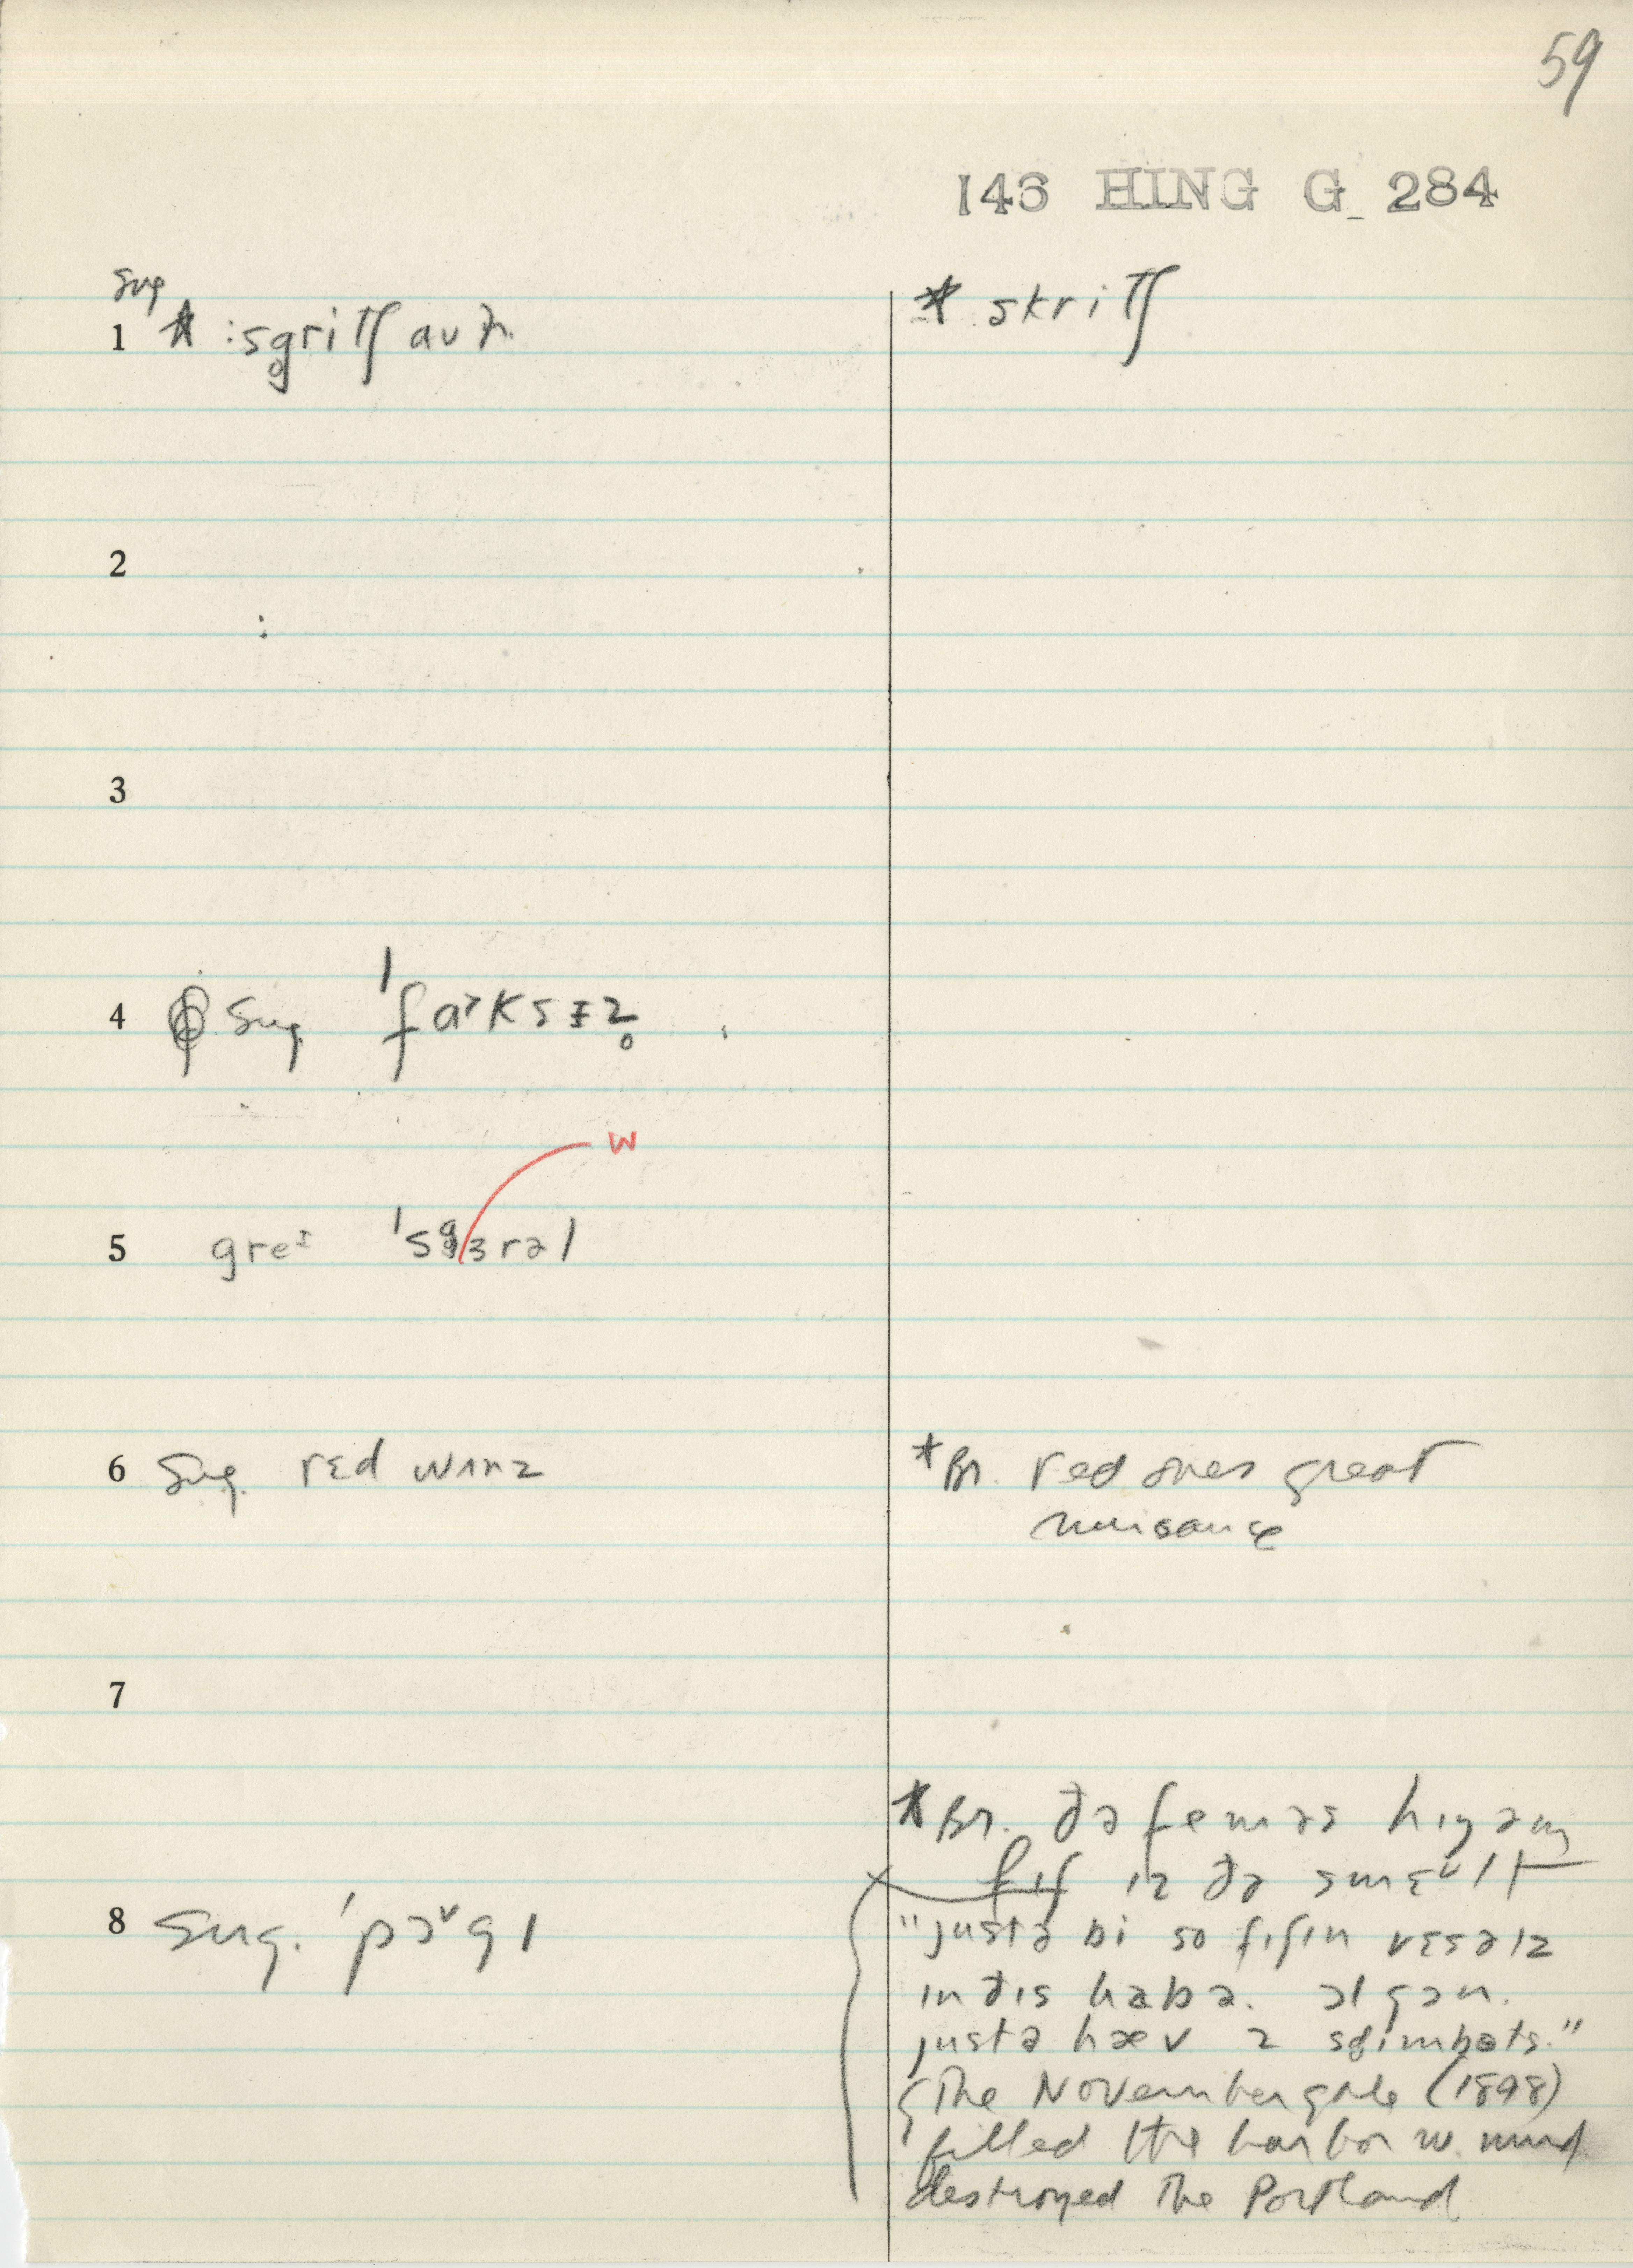 59
146 HING G 284
Sug
1 * :sg̥ritʃ aʊɫ
* skritʃ
2
3
4 Sug. ˈfɑˑksɪz̥
w
5 greɪ ˈsg̥ɜrəl
6 Sug. rɛd wʌnz
*Br. red ones great
nuisance
7
*Br. ðə feməs hɪŋəm
fɪʃ ɪz ðə smɛᵛlt
8 Sug. ˈpɔᵛgɪ
"justə bi so fɪʃɪn vɛsəlz
in ðɪs habə. əl gɔn.
justə hæv 2 sg̥imbots."
The November gale (1898)
filled the harbor w. mud
destroyed the Portland